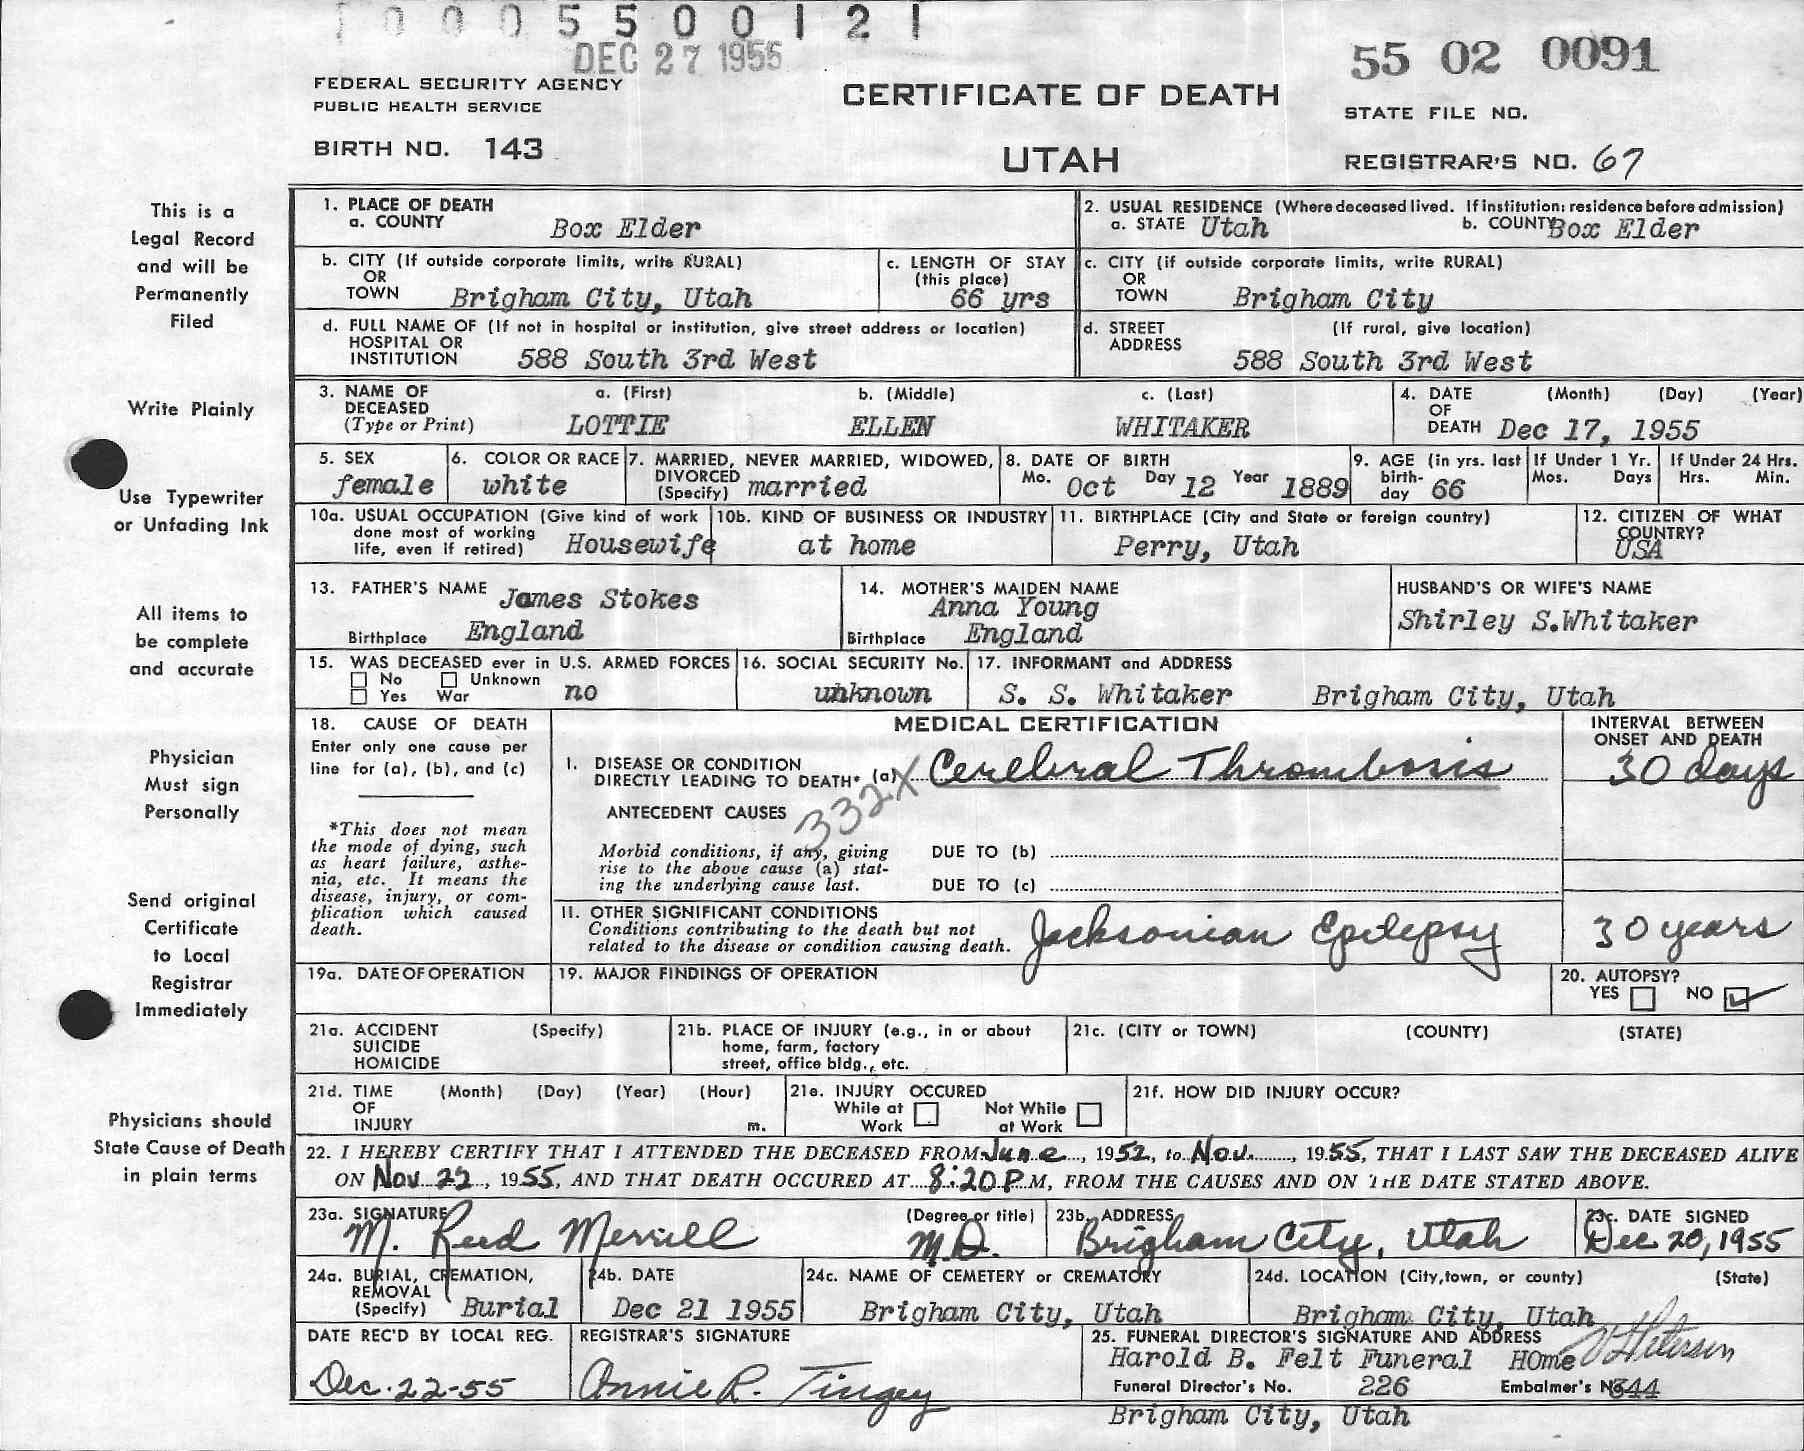 1000550012 1
DEC 27 1955
55 02 0091
FEDERAL SECURITY AGENCY
PUBLIC HEALTH SERVICE
CERTIFICATE OF DEATH
STATE FILE NO.
BIRTH NO. 143
UTAH
REGISTRAR'S NO. 67
This is a
Legal Record
and will be
Permanently
Filed
Write Plainly
Use Typewriter
or Unfading Ink
All items to
be complete
and accurate
Physician
Must sign
Personally
Send original
Certificate
to Local
Registrar
Immediately
Physicians should
State Cause of Death
in plain terms
1. PLACE OF DEATH
a. COUNTY Box Elder
2. USUAL RESIDENCE (Where deceased lived. If institution: residence before admission)
a. STATE Utah b. COUNTY Box Elder
b. CITY (If outside corporate limits, write RURAL)
OR
TOWN Brigham City, Utah
c. LENGTH OF STAY
(this place)
66 yrs
c. CITY (if outside corporate limits, write RURAL)
OR
TOWN Brigham City
d. FULL NAME OF (If not in hospital or institution, give street address or location)
HOSPITAL OR
INSTITUTION 588 South 3rd West
d. STREET (If rural, give location)
ADDRESS
588 South 3rd West
3. NAME OF a. (First) b. (Middle) c. (Last)
DECEASED
(Type or Print) LOTTIE ELLEN WHITAKER
4. DATE (Month) (Day) (Year)
OF
DEATH Dec 17, 1955
5. SEX
female
6. COLOR OR RACE
white
7. MARRIED, NEVER MARRIED, WIDOWED,
DIVORCED
(Specify) married
8. DATE OF BIRTH
Mo. Oct Day 12 Year 1889
9. AGE (in yrs. last
birth-
day 66
If Under 1 Yr.
Mos. Days
If Under 24 Hrs.
Hrs. Min.
10a. USUAL OCCUPATION (Give kind of work
done most of working
life, even if retired) Housewife
10b. KIND OF BUSINESS OR INDUSTRY
at home
11. BIRTHPLACE (City and State or foreign country)
Perry, Utah
12. CITIZEN OF WHAT
COUNTRY?
USA
13. FATHER'S NAME James Stokes
Birthplace England
14. MOTHER'S MAIDEN NAME
Anna Young
Birthplace England
HUSBAND'S OR WIFE'S NAME
Shirley S.Whitaker
15. WAS DECEASED ever in U.S. ARMED FORCES
No Unknown
Yes War no
16. SOCIAL SECURITY No.
unknown
17. INFORMANT and ADDRESS
S. S. Whitaker Brigham City, Utah
18. CAUSE OF DEATH
Enter only one cause per
line for (a), (b), and (c)
*This does not mean
the mode of dying, such
as heart failure, asthe-
nia, etc. It means the
disease, injury, or com-
plication which caused
death.
MEDICAL CERTIFICATION
INTERVAL BETWEEN
ONSET AND DEATH
I. DISEASE OR CONDITION
DIRECTLY LEADING TO DEATH* (a) Cerebral Thrombosis 30 days
332X
ANTECEDENT CAUSES
Morbid conditions, if any, giving
rise to the above cause (a) stat-
ing the underlying cause last.
DUE TO (b)
DUE TO (c)
II. OTHER SIGNIFICANT CONDITIONS
Conditions contributing to the death but not
related to the disease or condition causing death.
Jacksonian Epilepsy 30 years
19a. DATE OF OPERATION
19. MAJOR FINDINGS OF OPERATION
20. AUTOPSY?
YES NO
21a. ACCIDENT (Specify)
SUICIDE
HOMICIDE
21b. PLACE OF INJURY (e.g., in or about
home, farm, factory
street, office bldg., etc.
21c. (CITY or TOWN) (COUNTY) (STATE)
21d. TIME (Month) (Day) (Year) (Hour)
OF
INJURY m.
21e. INJURY OCCURED
While at Work
Not While at Work
21f. HOW DID INJURY OCCUR?
22. I HEREBY CERTIFY THAT I ATTENDED THE DECEASED FROM June, 1952, to Nov., 1955, THAT I LAST SAW THE DECEASED ALIVE
ON Nov 22, 1955, AND THAT DEATH OCCURED AT 8:20 P.M, FROM THE CAUSES AND ON THE DATE STATED ABOVE.
23a. SIGNATURE (Degree or title)
M. Reed Merrill M.D.
23b. ADDRESS
Brigham City, Utah
23c. DATE SIGNED
Dec 20, 1955
24a. BURIAL, CREMATION,
REMOVAL
(Specify) Burial
24b. DATE
Dec 21 1955
24c. NAME OF CEMETERY or CREMATORY
Brigham City, Utah
24d. LOCATION (City,town, or county) (State)
Brigham City, Utah
DATE REC'D BY LOCAL REG.
Dec. 22-55
REGISTRAR'S SIGNATURE
Annie R. Tingey
25. FUNERAL DIRECTOR'S SIGNATURE AND ADDRESS
Harold B. Felt Funeral HOme
Funeral Director's No. 226 Embalmer's No 344
Brigham City, Utah